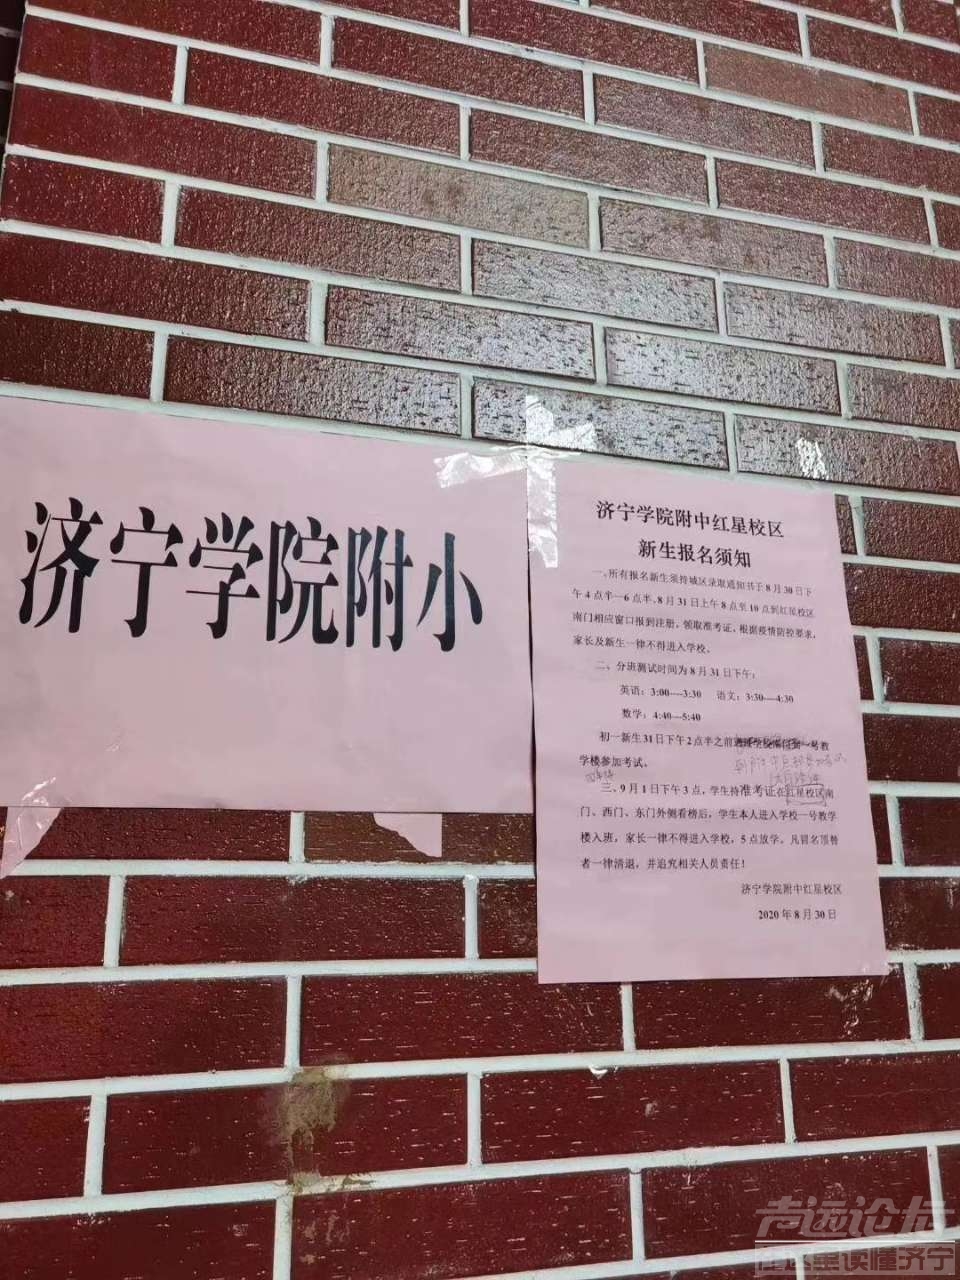 济宁学院附小
济宁学院附中红星校区
新生报名须知
一、所有报名新生须持城区录取通知书于8月30日下
午4点半—6点半、8月31日上午8点至10点到红星校区
南门相应窗口报到注册，领取准考证，根据疫情防控要求，
家长及新生一律不得进入学校。
二、分班测试时间为8月31日下午：
英语：3:00----3:30 语文：3:30----4:30
数学：4:40---5:40
初一新生31日下午2点半之前 一号教
学楼参加考试。
三、9月1日下午3点，学生持准考证在红星校区南
门、西门、东门外侧看榜后，学生本人进入学校一号教学
楼入班，家长一律不得进入学校，5点放学。凡冒名顶替
者一律清退，并追究相关人员责任！
济宁学院附中红星校区
2020年8月30日
声远论坛
在这里读懂济宁